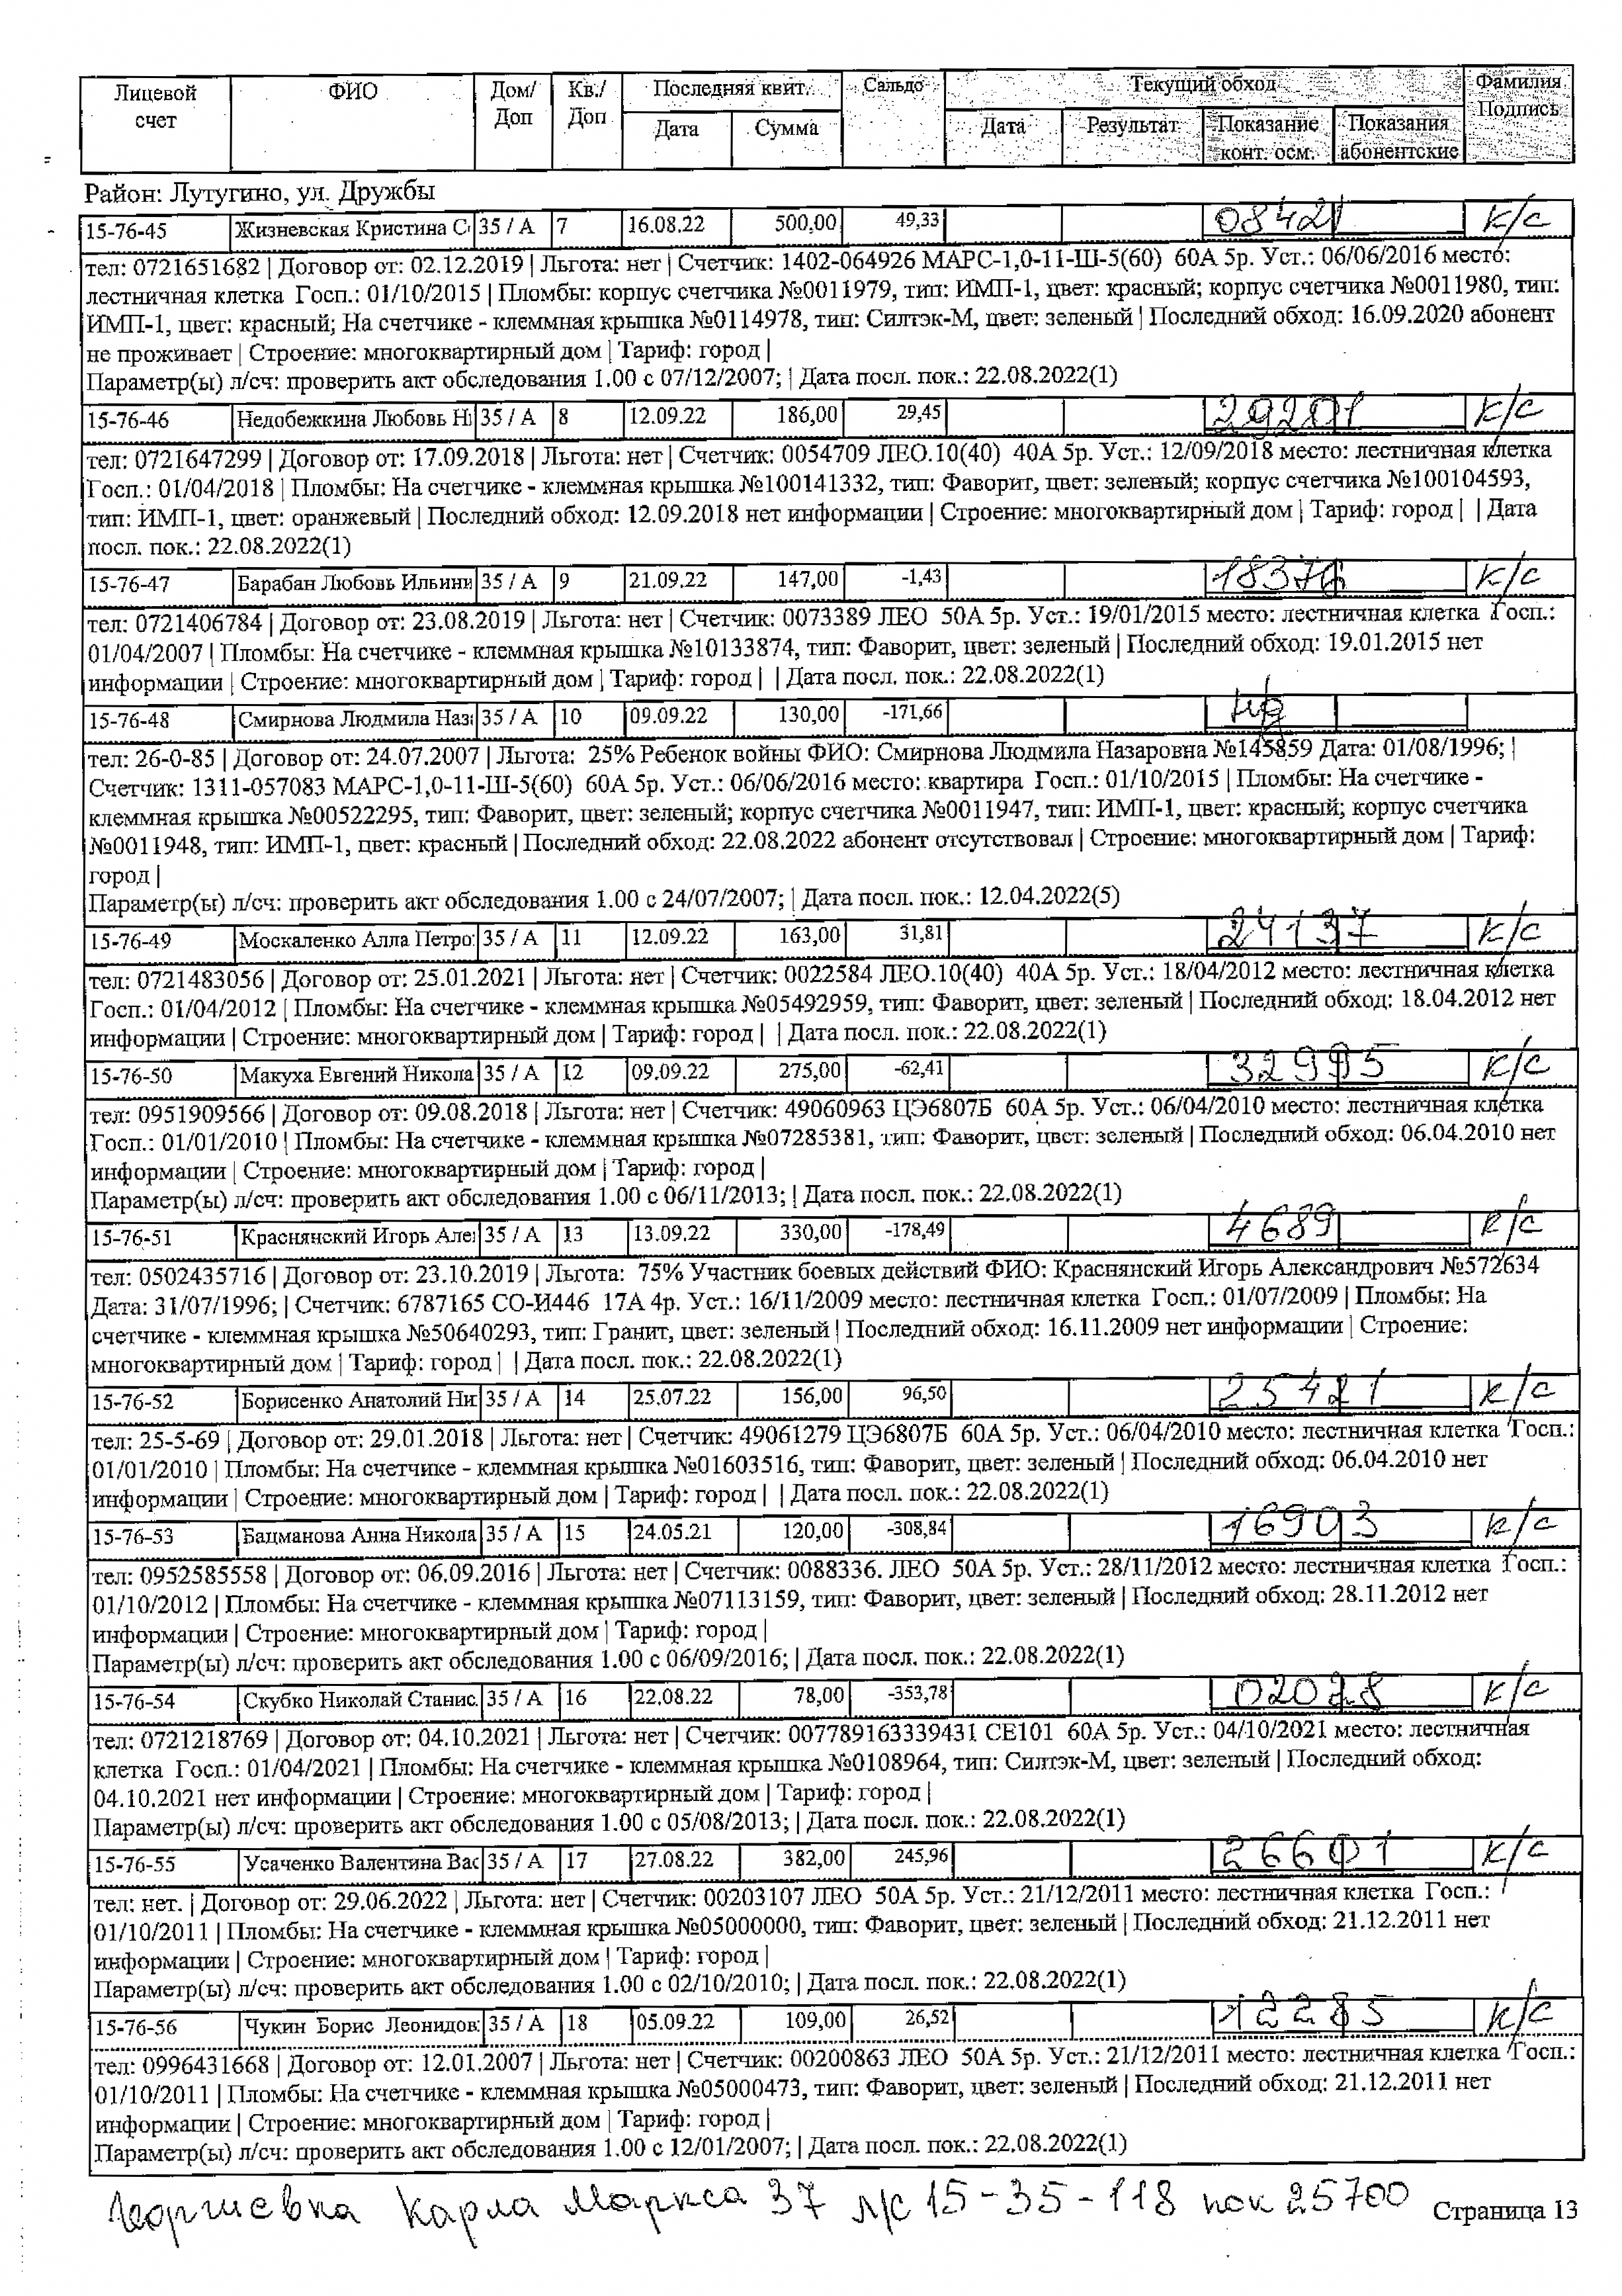 Лицевой счет ФИО Дом/ Доп Кв./ Доп Последняя квит. Дата Сумма Сальдо Текущий обход Дата Результат Показание конт. осм. Показания абонентские Фамилия Подпись
Район: Лутугино, ул. Дружбы
15-76-45 Жизневская Кристина С 35 / А 7 16.08.22 500,00 49,33 08421 к/с
тел: 0721651682 | Договор от: 02.12.2019 | Льгота: нет | Счетчик: 1402-064926 МАРС-1,0-11-Ш-5(60) 60А 5р. Уст.: 06/06/2016 место:
лестничная клетка Госп.: 01/10/2015 | Пломбы: корпус счетчика №0011979, тип: ИМП-1, цвет: красный; корпус счетчика №0011980, тип:
ИМП-1, цвет: красный; На счетчике - клеммная крышка №0114978, тип: Силтэк-М, цвет: зеленый | Последний обход: 16.09.2020 абонент
не проживает | Строение: многоквартирный дом | Тариф: город |
Параметр(ы) л/сч: проверить акт обследования 1.00 с 07/12/2007; | Дата посл. пок.: 22.08.2022(1)
15-76-46 Недобежкина Любовь Н 35 / А 8 12.09.22 186,00 29,45 29201 к/с
тел: 0721647299 | Договор от: 17.09.2018 | Льгота: нет | Счетчик: 0054709 ЛЕО.10(40) 40А 5р. Уст.: 12/09/2018 место: лестничная клетка
Госп.: 01/04/2018 | Пломбы: На счетчике - клеммная крышка №100141332, тип: Фаворит, цвет: зеленый; корпус счетчика №100104593,
тип: ИМП-1, цвет: оранжевый | Последний обход: 12.09.2018 нет информации | Строение: многоквартирный дом | Тариф: город | | Дата
посл. пок.: 22.08.2022(1)
15-76-47 Барабан Любовь Ильини 35 / А 9 21.09.22 147,00 -1,43 18376 к/с
тел: 0721406784 | Договор от: 23.08.2019 | Льгота: нет | Счетчик: 0073389 ЛЕО 50А 5р. Уст.: 19/01/2015 место: лестничная клетка Госп.:
01/04/2007 | Пломбы: На счетчике - клеммная крышка №10133874, тип: Фаворит, цвет: зеленый | Последний обход: 19.01.2015 нет
информации | Строение: многоквартирный дом | Тариф: город | | Дата посл. пок.: 22.08.2022(1)
15-76-48 Смирнова Людмила Наза 35 / А 10 09.09.22 130,00 -171,66
тел: 26-0-85 | Договор от: 24.07.2007 | Льгота: 25% Ребенок войны ФИО: Смирнова Людмила Назаровна №145859 Дата: 01/08/1996; |
Счетчик: 1311-057083 МАРС-1,0-11-Ш-5(60) 60А 5р. Уст.: 06/06/2016 место: квартира Госп.: 01/10/2015 | Пломбы: На счетчике -
клеммная крышка №00522295, тип: Фаворит, цвет: зеленый; корпус счетчика №0011947, тип: ИМП-1, цвет: красный; корпус счетчика
№0011948, тип: ИМП-1, цвет: красный | Последний обход: 22.08.2022 абонент отсутствовал | Строение: многоквартирный дом | Тариф:
город |
Параметр(ы) л/сч: проверить акт обследования 1.00 с 24/07/2007; | Дата посл. пок.: 12.04.2022(5)
15-76-49 Москаленко Алла Петро 35 / А 11 12.09.22 163,00 31,81 24137 к/с
тел: 0721483056 | Договор от: 25.01.2021 | Льгота: нет | Счетчик: 0022584 ЛЕО.10(40) 40А 5р. Уст.: 18/04/2012 место: лестничная клетка
Госп.: 01/04/2012 | Пломбы: На счетчике - клеммная крышка №05492959, тип: Фаворит, цвет: зеленый | Последний обход: 18.04.2012 нет
информации | Строение: многоквартирный дом | Тариф: город | | Дата посл. пок.: 22.08.2022(1)
15-76-50 Макуха Евгений Никола 35 / А 12 09.09.22 275,00 -62,41 32995 к/с
тел: 0951909566 | Договор от: 09.08.2018 | Льгота: нет | Счетчик: 49060963 ЦЭ6807Б 60А 5р. Уст.: 06/04/2010 место: лестничная клетка
Госп.: 01/01/2010 | Пломбы: На счетчике - клеммная крышка №07285381, тип: Фаворит, цвет: зеленый | Последний обход: 06.04.2010 нет
информации | Строение: многоквартирный дом | Тариф: город |
Параметр(ы) л/сч: проверить акт обследования 1.00 с 06/11/2013; | Дата посл. пок.: 22.08.2022(1)
15-76-51 Краснянский Игорь Але 35 / А 13 13.09.22 330,00 -178,49 4689 к/с
тел: 0502435716 | Договор от: 23.10.2019 | Льгота: 75% Участник боевых действий ФИО: Краснянский Игорь Александрович №572634
Дата: 31/07/1996; | Счетчик: 6787165 СО-И446 17А 4р. Уст.: 16/11/2009 место: лестничная клетка Госп.: 01/07/2009 | Пломбы: На
счетчике - клеммная крышка №50640293, тип: Гранит, цвет: зеленый | Последний обход: 16.11.2009 нет информации | Строение:
многоквартирный дом | Тариф: город | | Дата посл. пок.: 22.08.2022(1)
15-76-52 Борисенко Анатолий Ни 35 / А 14 25.07.22 156,00 96,50 25421 к/с
тел: 25-5-69 | Договор от: 29.01.2018 | Льгота: нет | Счетчик: 49061279 ЦЭ6807Б 60А 5р. Уст.: 06/04/2010 место: лестничная клетка Госп.:
01/01/2010 | Пломбы: На счетчике - клеммная крышка №01603516, тип: Фаворит, цвет: зеленый | Последний обход: 06.04.2010 нет
информации | Строение: многоквартирный дом | Тариф: город | | Дата посл. пок.: 22.08.2022(1)
15-76-53 Бацманова Анна Никола 35 / А 15 24.05.21 120,00 -308,84 16903 к/с
тел: 0952585558 | Договор от: 06.09.2016 | Льгота: нет | Счетчик: 0088336. ЛЕО 50А 5р. Уст.: 28/11/2012 место: лестничная клетка Госп.:
01/10/2012 | Пломбы: На счетчике - клеммная крышка №07113159, тип: Фаворит, цвет: зеленый | Последний обход: 28.11.2012 нет
информации | Строение: многоквартирный дом | Тариф: город |
Параметр(ы) л/сч: проверить акт обследования 1.00 с 06/09/2016; | Дата посл. пок.: 22.08.2022(1)
15-76-54 Скубко Николай Станис. 35 / А 16 22.08.22 78,00 -353,78 02028 к/с
тел: 0721218769 | Договор от: 04.10.2021 | Льгота: нет | Счетчик: 007789163339431 СЕ101 60А 5р. Уст.: 04/10/2021 место: лестничная
клетка Госп.: 01/04/2021 | Пломбы: На счетчике - клеммная крышка №0108964, тип: Силтэк-М, цвет: зеленый | Последний обход:
04.10.2021 нет информации | Строение: многоквартирный дом | Тариф: город |
Параметр(ы) л/сч: проверить акт обследования 1.00 с 05/08/2013; | Дата посл. пок.: 22.08.2022(1)
15-76-55 Усаченко Валентина Вас 35 / А 17 27.08.22 382,00 245,96 26601 к/с
тел: нет. | Договор от: 29.06.2022 | Льгота: нет | Счетчик: 00203107 ЛЕО 50А 5р. Уст.: 21/12/2011 место: лестничная клетка Госп.:
01/10/2011 | Пломбы: На счетчике - клеммная крышка №05000000, тип: Фаворит, цвет: зеленый | Последний обход: 21.12.2011 нет
информации | Строение: многоквартирный дом | Тариф: город |
Параметр(ы) л/сч: проверить акт обследования 1.00 с 02/10/2010; | Дата посл. пок.: 22.08.2022(1)
15-76-56 Чукин Борис Леонидов 35 / А 18 05.09.22 109,00 26,52 12285 к/с
тел: 0996431668 | Договор от: 12.01.2007 | Льгота: нет | Счетчик: 00200863 ЛЕО 50А 5р. Уст.: 21/12/2011 место: лестничная клетка Госп.:
01/10/2011 | Пломбы: На счетчике - клеммная крышка №05000473, тип: Фаворит, цвет: зеленый | Последний обход: 21.12.2011 нет
информации | Строение: многоквартирный дом | Тариф: город |
Параметр(ы) л/сч: проверить акт обследования 1.00 с 12/01/2007; | Дата посл. пок.: 22.08.2022(1)
Георгиевка Карла Маркса 37 л/с 15-35-118 пок 25700 Страница 13